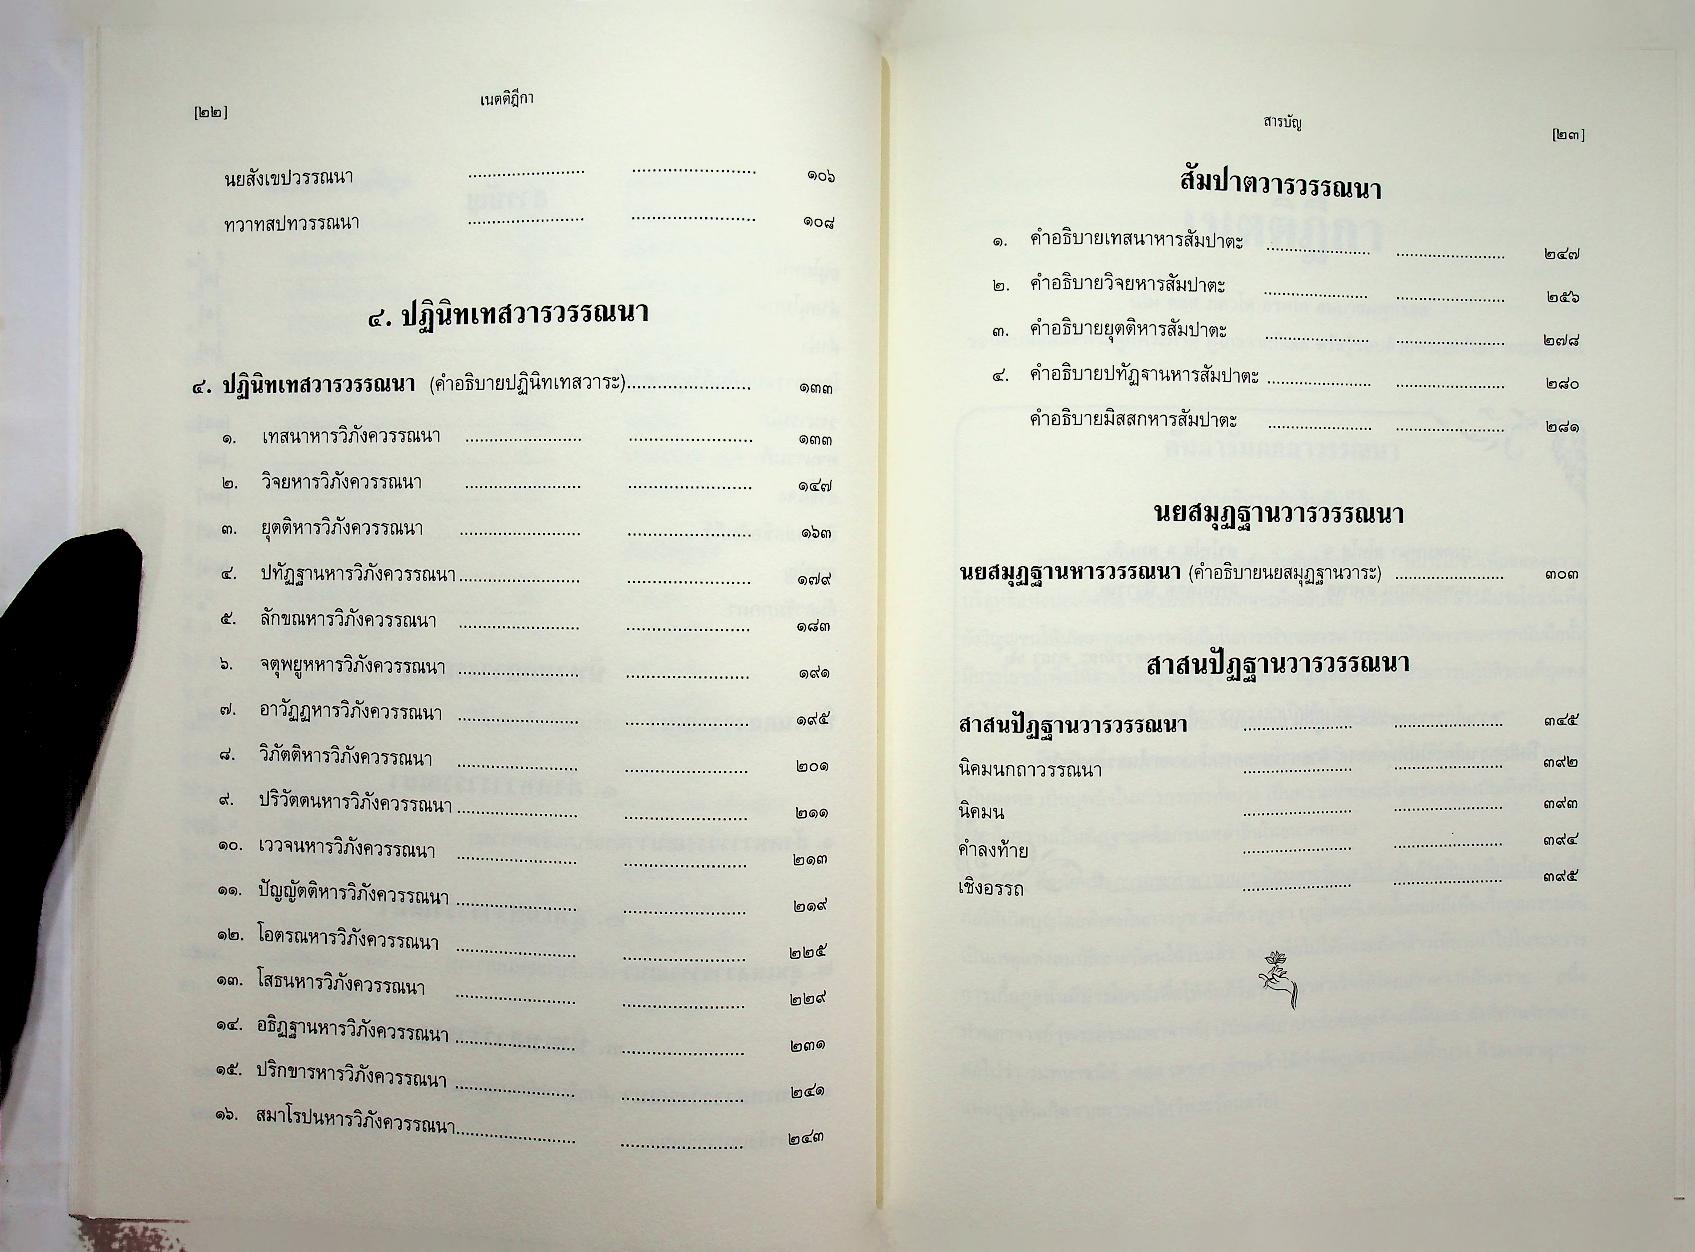 [๒๒] เนตติฎีกา
นยสังเขปวรรณนา ๑๐๖
ทวาทสปทวรรณนา ๑๐๘
๔. ปฏินิทเทสวารวรรณนา
๔. ปฏินิทเทสวารวรรณนา (คำอธิบายปฏินิทเทสวาระ) ๑๓๓
๑. เทสนาหารวิภังควรรณนา ๑๓๓
๒. วิจยหารวิภังควรรณนา ๑๔๗
๓. ยุตติหารวิภังควรรณนา ๑๖๓
๔. ปทัฏฐานหารวิภังควรรณนา ๑๗๙
๕. ลักขณหารวิภังควรรณนา ๑๘๓
๖. จตุพยูหหารวิภังควรรณนา ๑๙๑
๗. อาวัฏฏหารวิภังควรรณนา ๑๙๕
๘. วิภัตติหารวิภังควรรณนา ๒๐๑
๙. ปริวัตตนหารวิภังควรรณนา ๒๑๑
๑๐. เววจนหารวิภังควรรณนา ๒๑๓
๑๑. ปัญญัตติหารวิภังควรรณนา ๒๑๙
๑๒. โอตรณหารวิภังควรรณนา ๒๒๕
๑๓. โสธนหารวิภังควรรณนา ๒๒๙
๑๔. อธิฏฐานหารวิภังควรรณนา ๒๓๑
๑๕. ปริกขารหารวิภังควรรณนา ๒๔๑
๑๖. สมาโรปนหารวิภังควรรณนา ๒๔๓
สารบัญ [๒๓]
สัมปาตวารวรรณนา
๑. คำอธิบายเทสนาหารสัมปาตะ ๒๔๗
๒. คำอธิบายวิจยหารสัมปาตะ ๒๕๖
๓. คำอธิบายยุตติหารสัมปาตะ ๒๗๘
๔. คำอธิบายปทัฏฐานหารสัมปาตะ ๒๘๐
คำอธิบายมิสสกหารสัมปาตะ ๒๘๑
นยสมุฏฐานวารวรรณนา
นยสมุฏฐานหารวรรณนา (คำอธิบายนยสมุฏฐานวาระ) ๓๐๓
สาสนปัฏฐานวารวรรณนา
สาสนปัฏฐานวารวรรณนา ๓๔๕
นิคมนกถาวรรณนา ๓๙๒
นิคมน ๓๙๓
คำลงท้าย ๓๙๔
เชิงอรรถ ๓๙๕